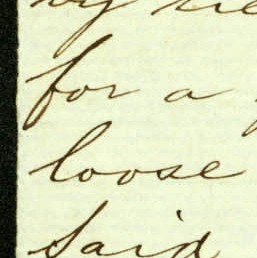 by
for a
loose
said